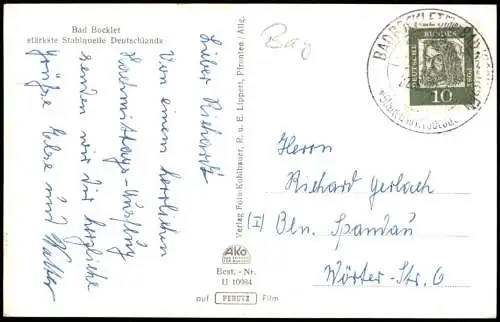 Bad Bocklet
stärkste Stahlquelle Deutschlands
Lieber Richard!
Von einem herrlichen
Nachmittags-Ausflug
senden wir dir herzliche
Grüße Else und Walter
Verlag Foto-Kohlbauer, R. u. E. Lippert, Pfronten / Allg.
AKO
Best.-Nr.
U 10984
auf PERUTZ Film
Bay
DEUTSCHE BUNDESPOST
10
BAD BOCKLET
Herrn
Richard Gerlach
(I) Bln. Spandau
Wörter-Str. 6